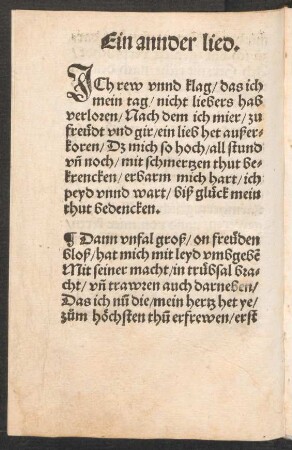 Ein annder lied.
ICh rew vnnd klag/das ich
mein tag/nicht liebers hab
verloren/Nach dem ich mier/zu
freüdt vnd gir/ein lieb het außer-
koren/Dz mich so hoch/all stund
vñ noch/mit schmertzen thut be-
krencken/erbarm mich hart/ich
peyd vnnd wart/biß glück mein
thut bedencken.
¶ Dann vnfal groß/on freüden
bloß/hat mich mit leyd vmbgebẽ
Mit seiner macht/in trübsal bra-
cht/vñ trawren auch darneben/
Das ich nũ die/mein hertz het ye/
züm höchsten thů erfrewen/erst